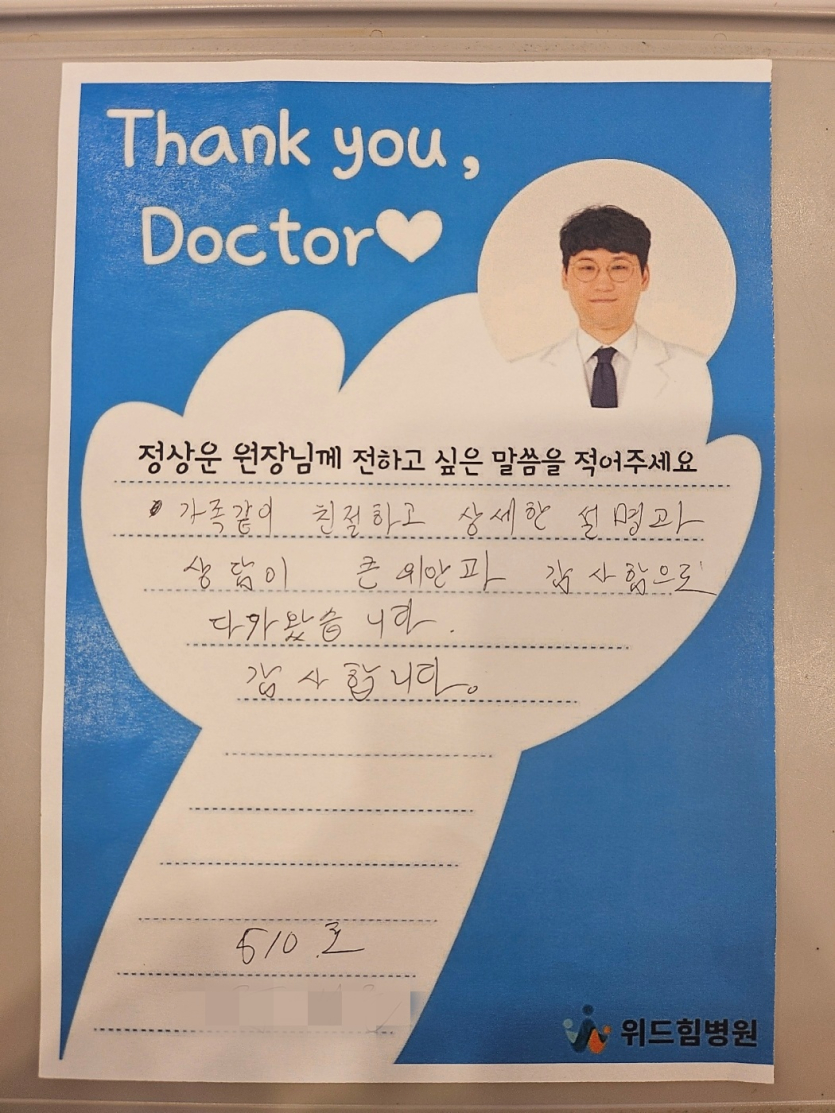 Thank you,
Doctor♥
정상운 원장님께 전하고 싶은 말씀을 적어주세요
가족같이 친절하고 상세한 설명과
상담이 큰 위안과 감사함으로
다가왔습니다.
감사합니다.
510호
위드힘병원